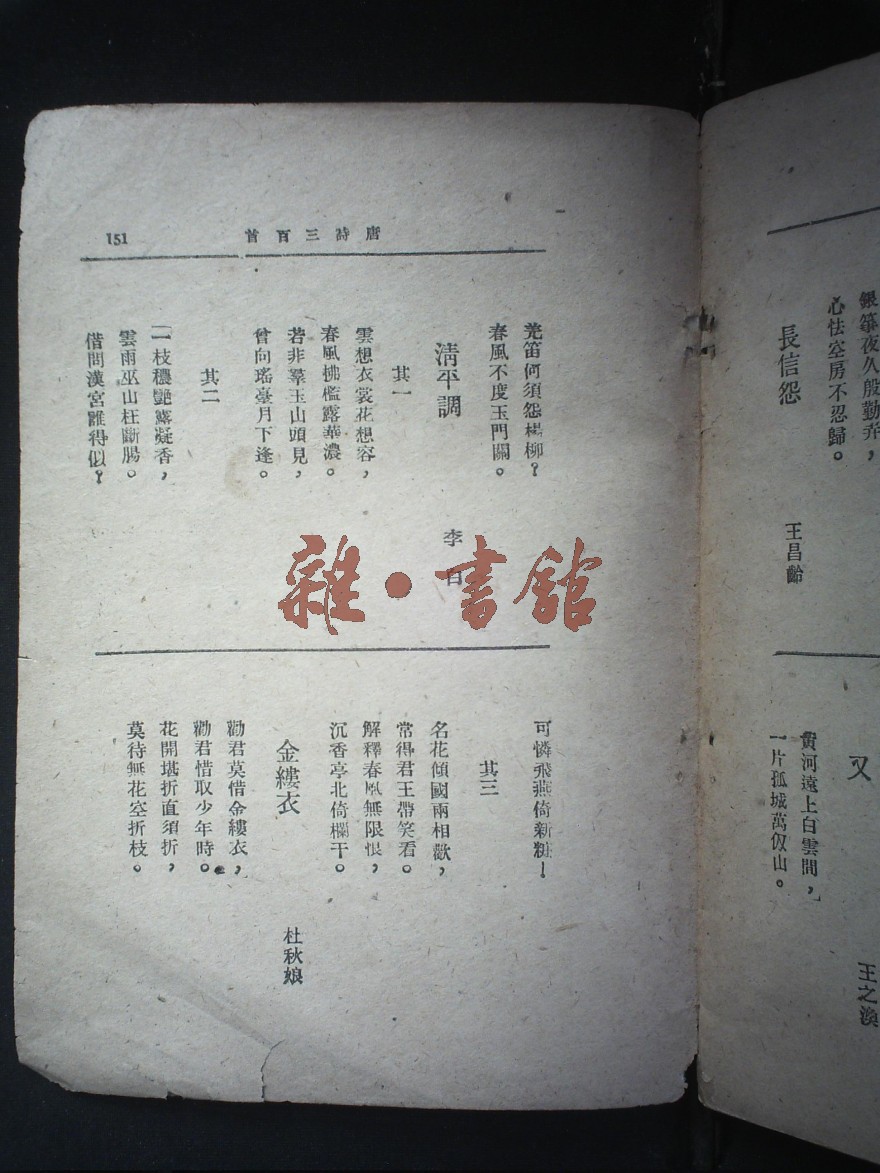 銀箏夜久殷勤弄，
心怯空房不忍歸。
長信怨
王昌齡
又
王之渙
黄河遠上白雲間，
一片孤城萬仭山。
唐詩三百首
151
羌笛何須怨楊柳？
春風不度玉門關。
清平調
李白
其一
雲想衣裳花想容，
春風拂檻露華濃。
若非羣玉山頭見，
曾向瑤臺月下逢。
其二
一枝穠艷露凝香，
雲雨巫山枉斷腸。
借問漢宮誰得似？
可憐飛燕倚新粧！
其三
名花傾國兩相歡，
常得君王帶笑看。
解釋春風無限恨，
沉香亭北倚欄干。
金縷衣
杜秋娘
勸君莫惜金縷衣，
勸君惜取少年時。
花開堪折直須折，
莫待無花空折枝。
雜·書館